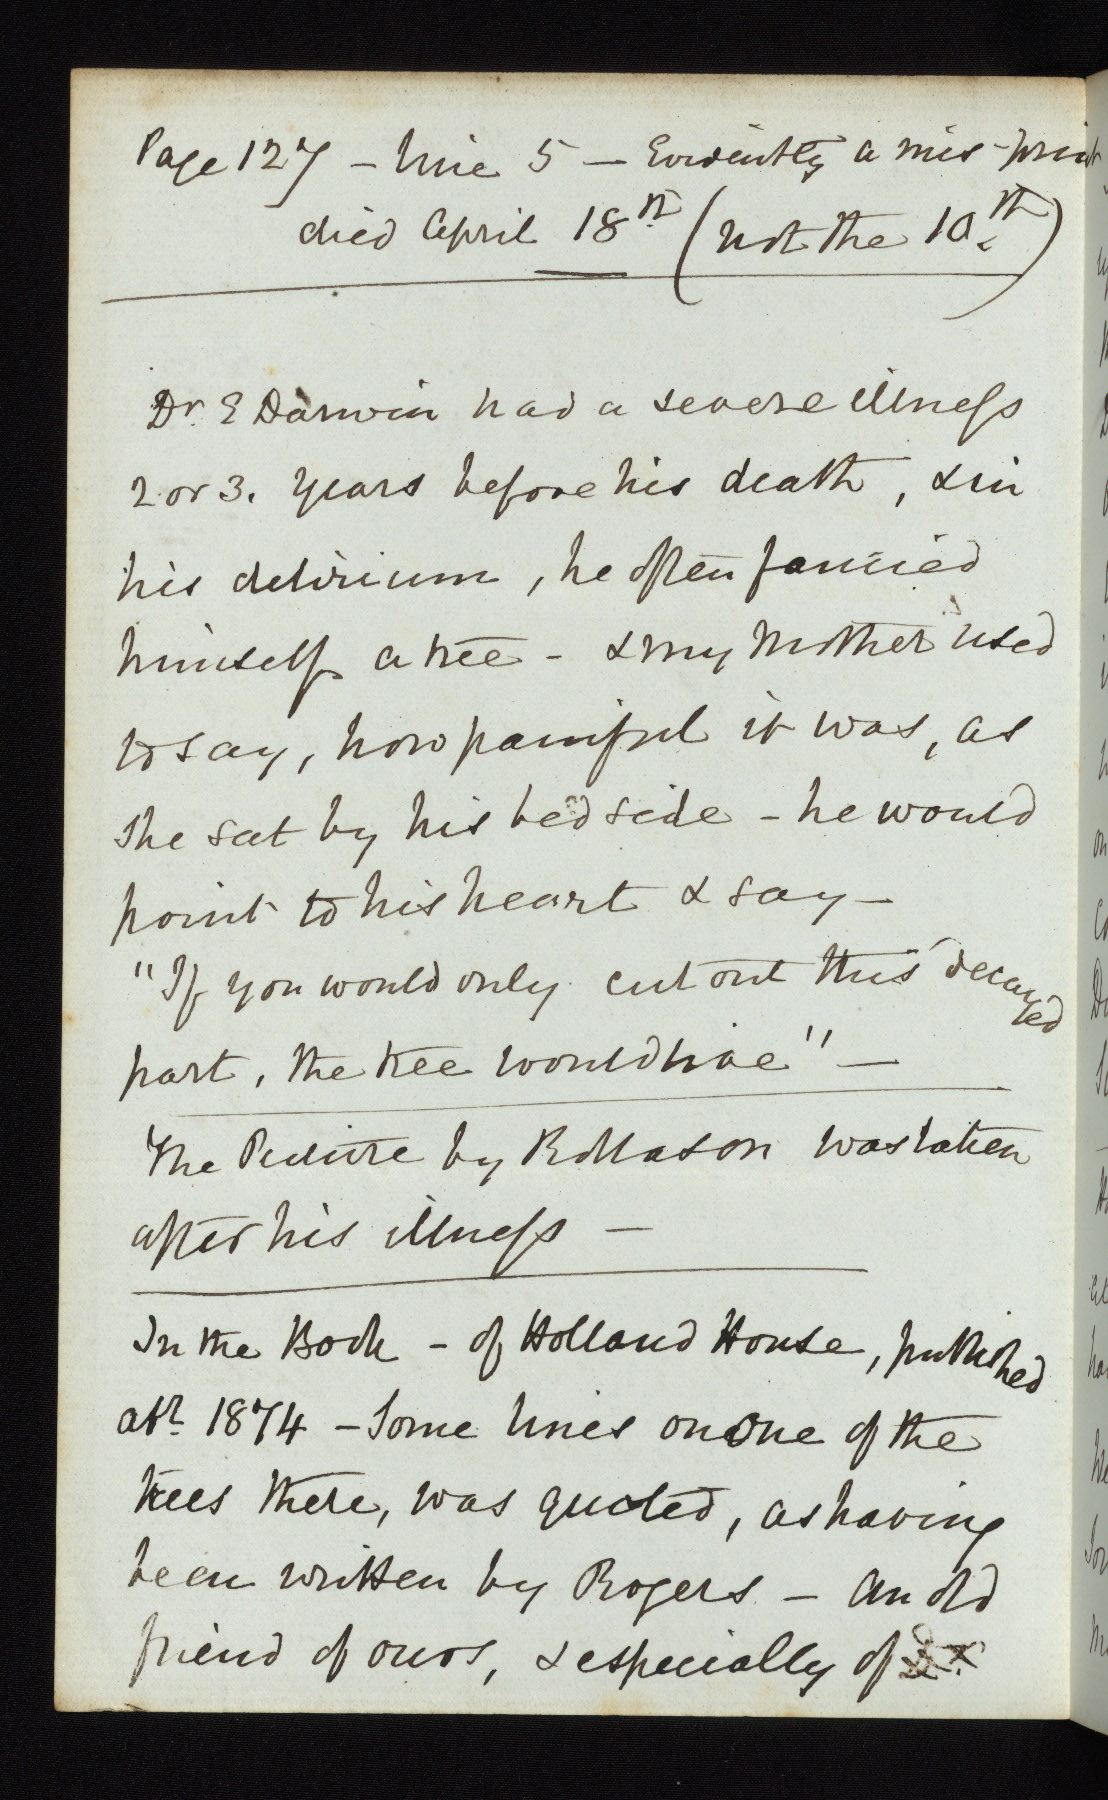 Page 127 – line 5 – Evidently a mis-print
died April 18th (not the 10th)
Dr. E Darwin had a severe illness
2 or 3. years before his death, & in
his delirium, he often fancied
himself a tree – & my Mother used
to say, how painful it was, as
she sat by his bedside – he would
point to his heart & say –
"If you would only cut out this decayed
part, the tree would live" –
The Picture by Rollason was taken
after his illness –
In the Book – of Holland House, published
abt. 1874 – Some lines on one of the
trees there, was quoted, as having
been written by Rogers – an old
friend of ours, & especially of